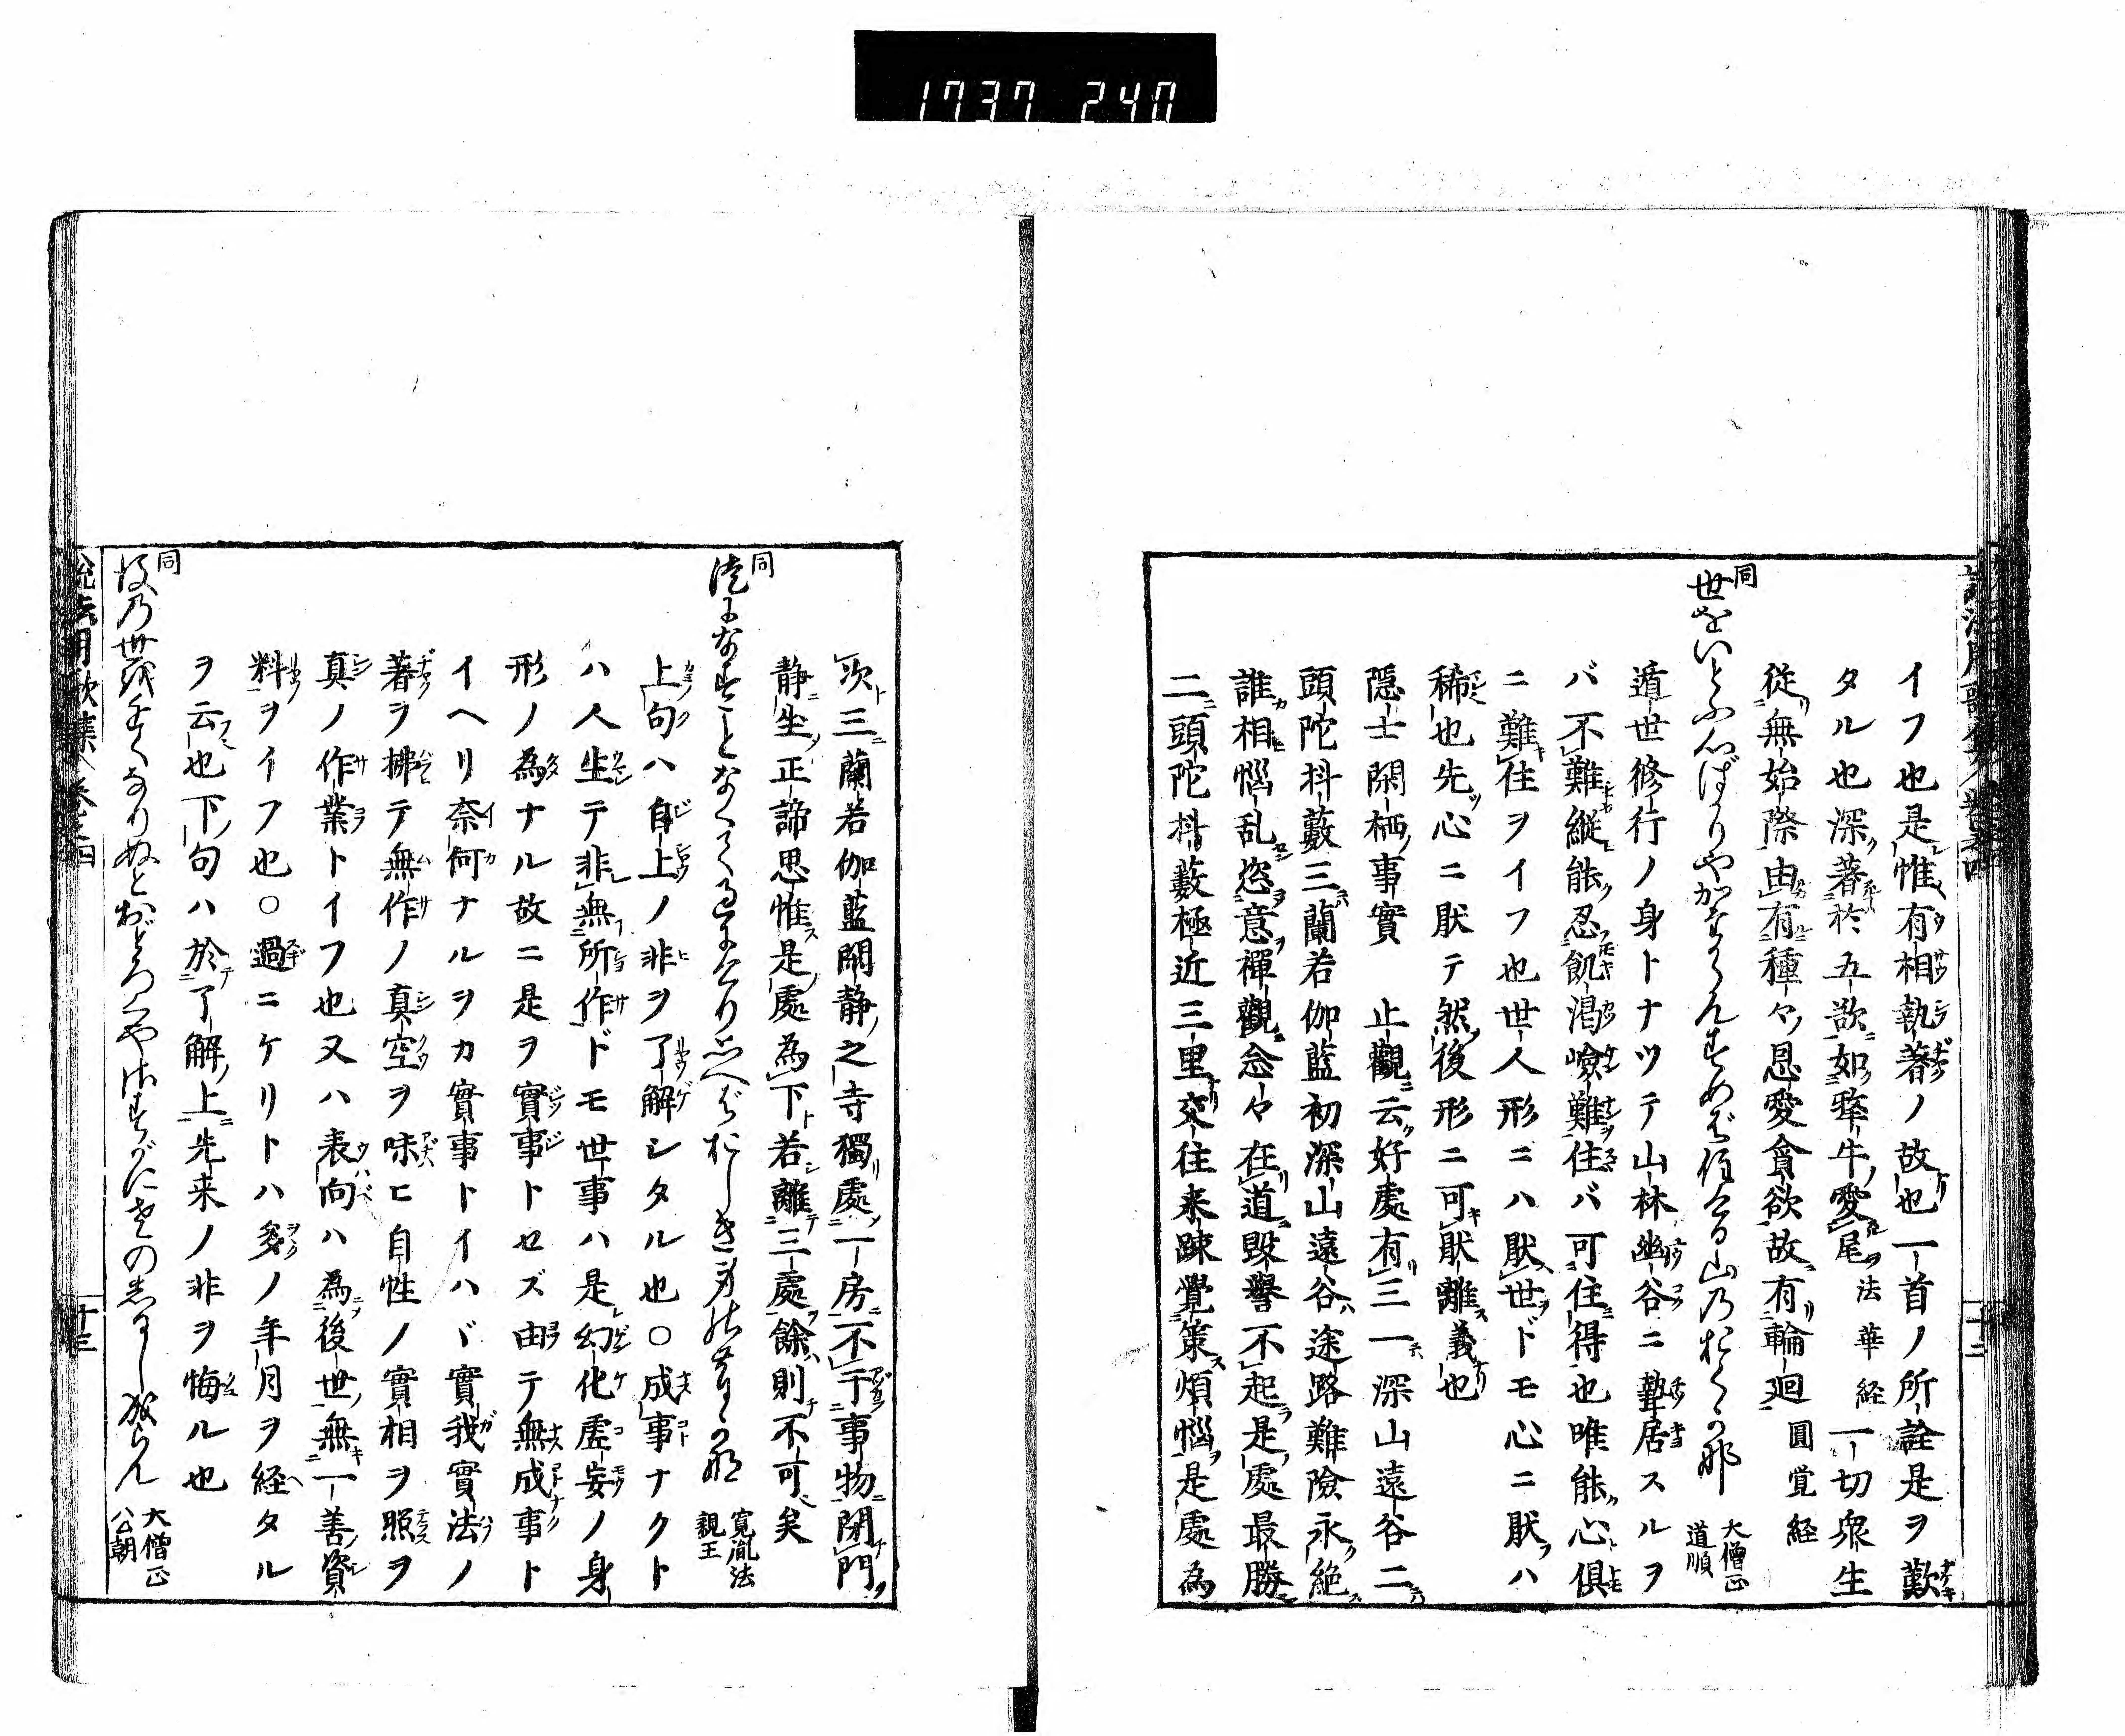 1737 240
イフ也是惟有相執著ノ故也一首ノ所詮是ヲ歎
タル也深著於五欲如犛牛愛尾 法華経 一切衆生
従無始際由有種々恩愛貪欲故有輪廻 圓覚経
同 世をいとふ心ばかりやかよふらんすめば住うき山乃おく 大僧正道順
遁世修行ノ身トナツテ山林幽谷ニ蟄居スルヲ
バ不難縦能忍飢渇嶮難住バ可住得也唯能心俱
ニ難住ヲイフ也世人形ニハ厭世ドモ心ニ厭ハ
稀也先心ニ厭テ然後形ニ可厭離義也
隠士閑栖事實 止觀云好處有三一深山遠谷二
頭陀抖藪三蘭若伽藍初深山遠谷途路難險永絶
誰相惱乱恣意禪觀念々在道毀譽不起是處最勝
二頭陀抖藪極近三里交往来踈覺策煩惱是處為
次三蘭若伽藍閑静之寺獨處一房不干事物閉門
静坐正諦思惟是處為下若離三處餘則不可矣
同 なすことなくて 寛胤法親王
上句ハ自上ノ非ヲ了解シタル也○成事ナクト
ハ人生テ非無所作ドモ世事ハ是幻化虚妄ノ身
形ノ為ナル故ニ是ヲ實事トセズ由テ無成事ト
イヘリ奈何ナルヲカ實事トイハヾ實我實法ノ
著ヲ拂テ無作ノ真空ヲ味ヒ自性ノ實相ヲ照ヲ
真ノ作業トイフ也又ハ表向ハ為後世無一善資
料ヲイフ也○過ニケリトハ多ノ年月ヲ経タル
ヲ云也下句ハ於了解上先来ノ非ヲ悔ル也
同 後乃世 ちかくなりぬとおどろくや 大僧正公朝
十三